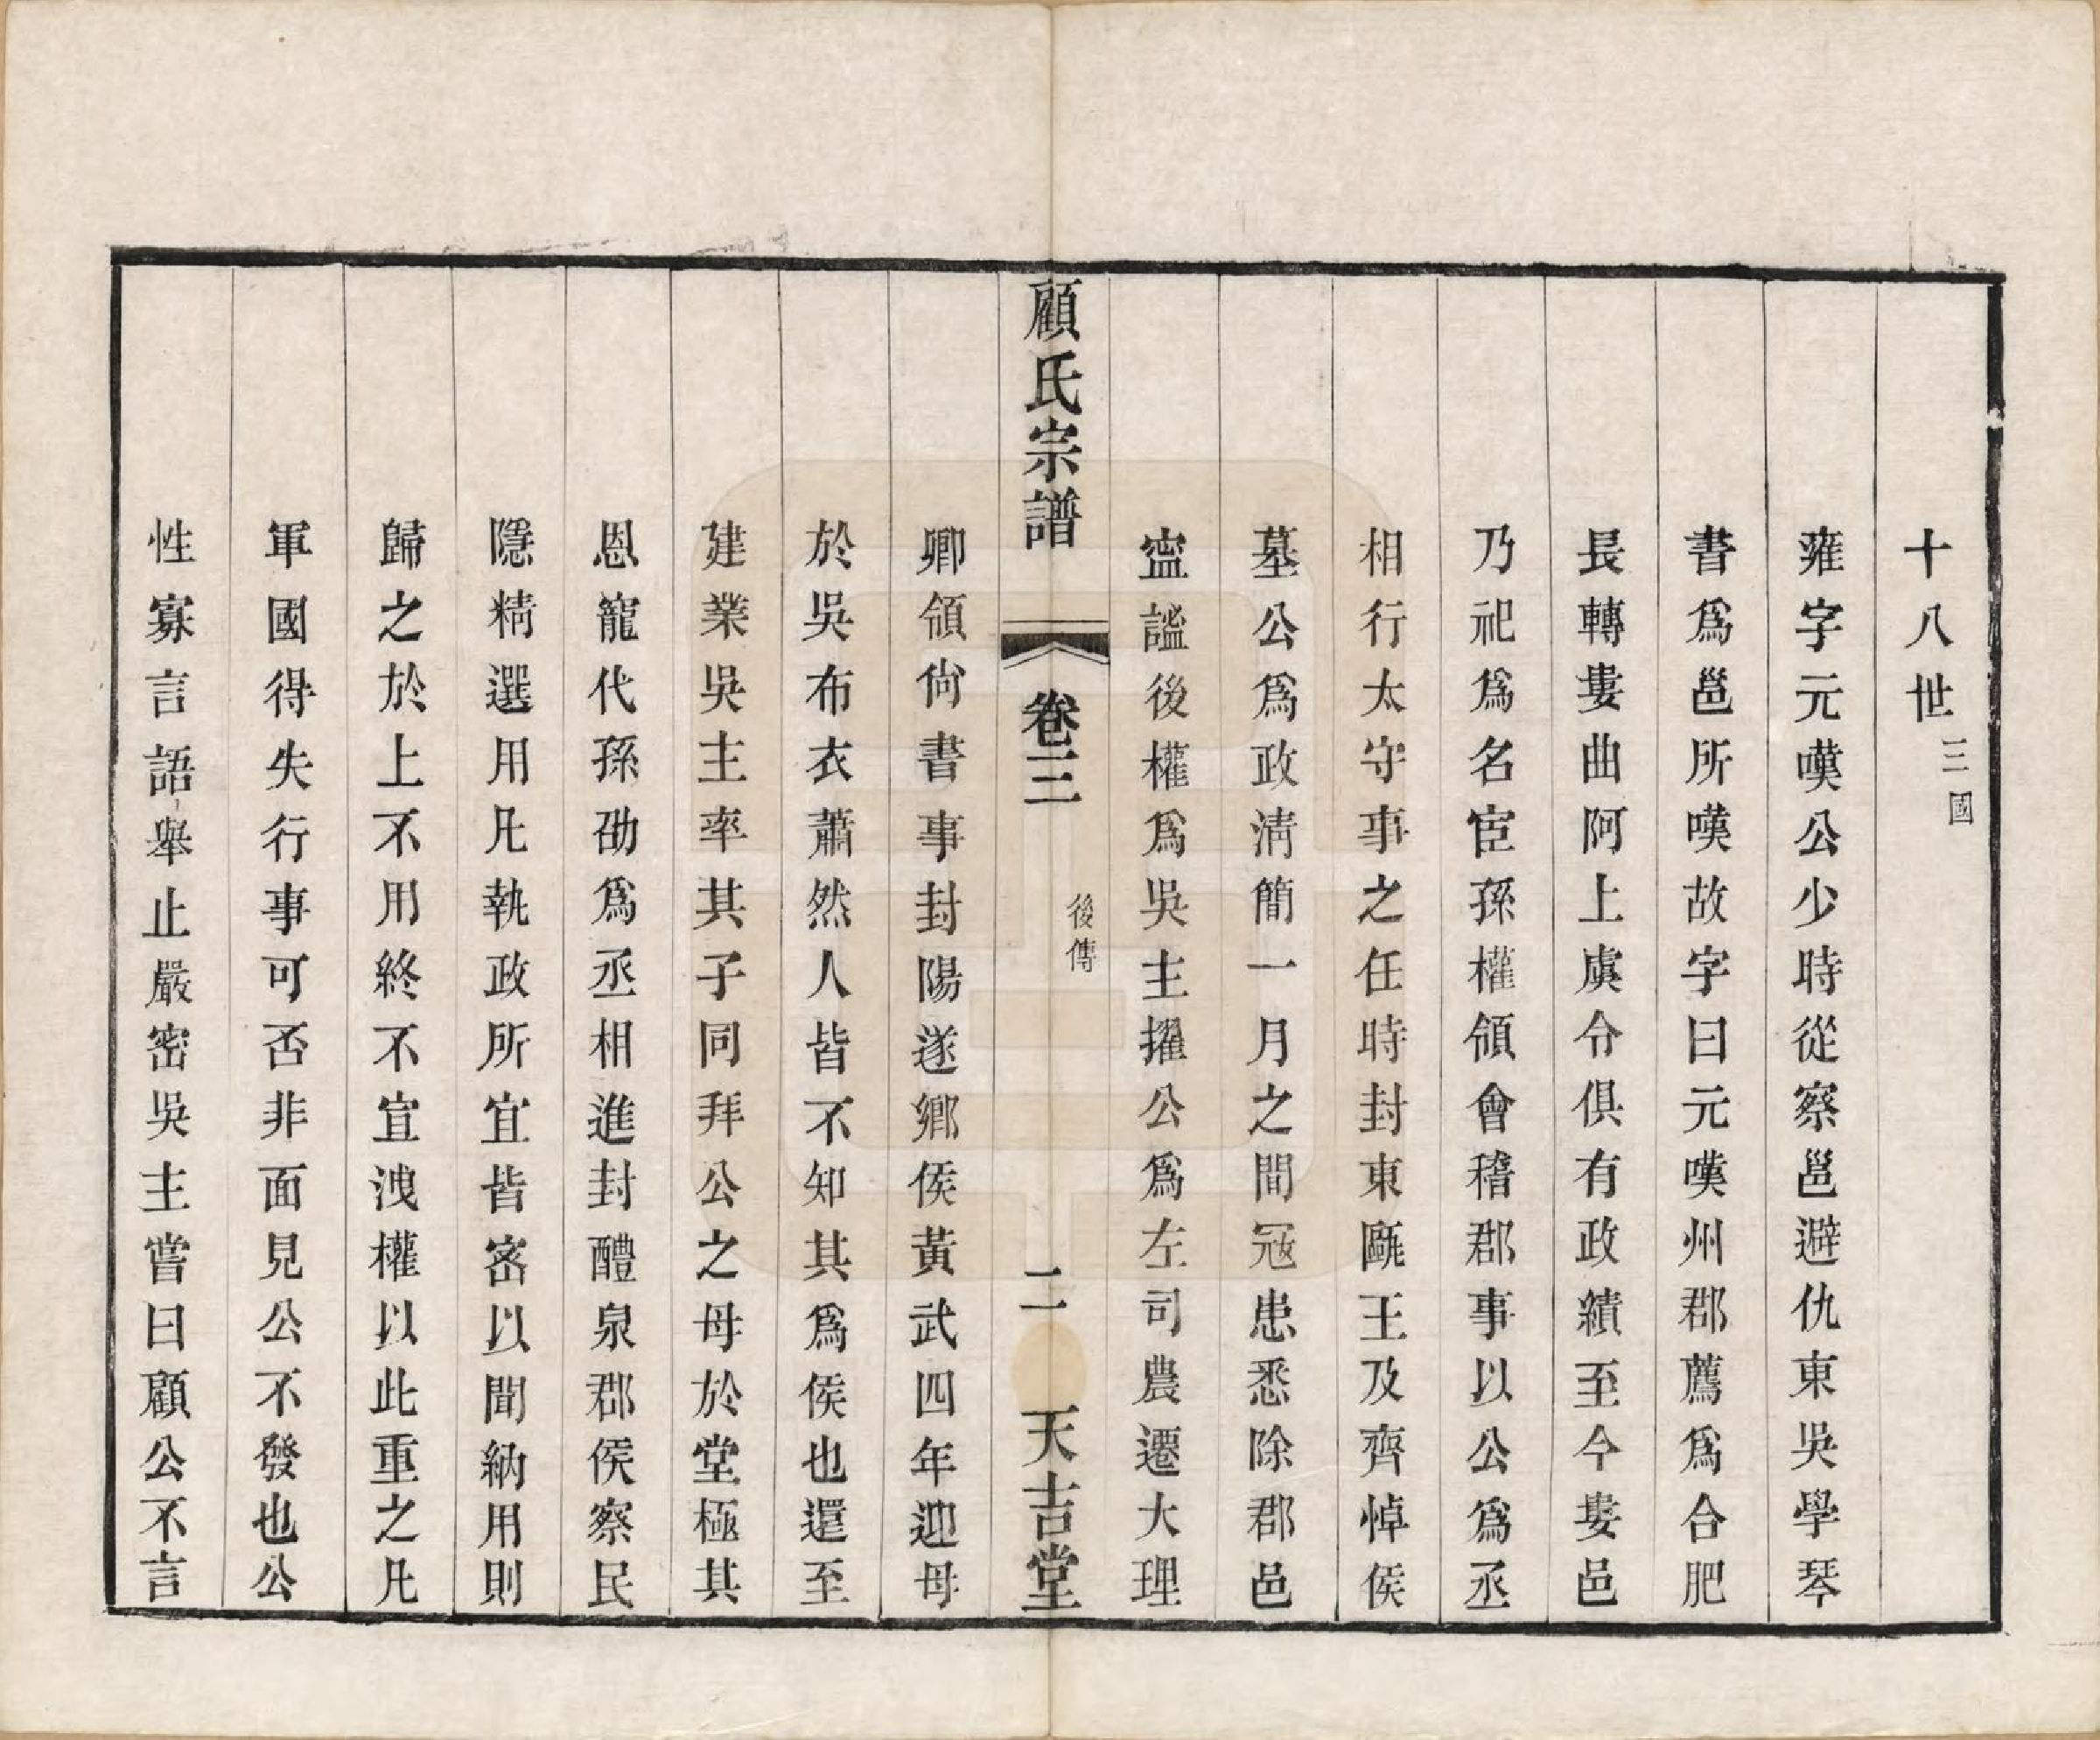 十八世三國
雍字元嘆公少時從察邕避仇東吳學琴
書爲邕所嘆故字曰元嘆州郡薦爲合肥
長轉婁曲阿上虞令俱有政績至今婁邑
乃祀爲名宦孫權領會稽郡事以公爲丞
相行太守事之任時封東甌王及齊悼侯
墓公爲政淸簡一月之間冦患悉除郡邑
寍謐後權爲吳主擢公爲左司農遷大理
顧氏宗譜 卷三 後傳 二 天吉堂
卿領尙書事封陽遂鄉侯黃武四年迎母
於吳布衣蕭然人皆不知其爲侯也還至
建業吳主率其子同拜公之母於堂極其
恩寵代孫劭爲丞相進封醴泉郡侯察民
隱精選用凡執政所宜皆密以聞納用則
歸之於上不用終不宣洩權以此重之凡
軍國得失行事可否非面見公不發也公
性寡言語舉止嚴密吳主嘗曰顧公不言